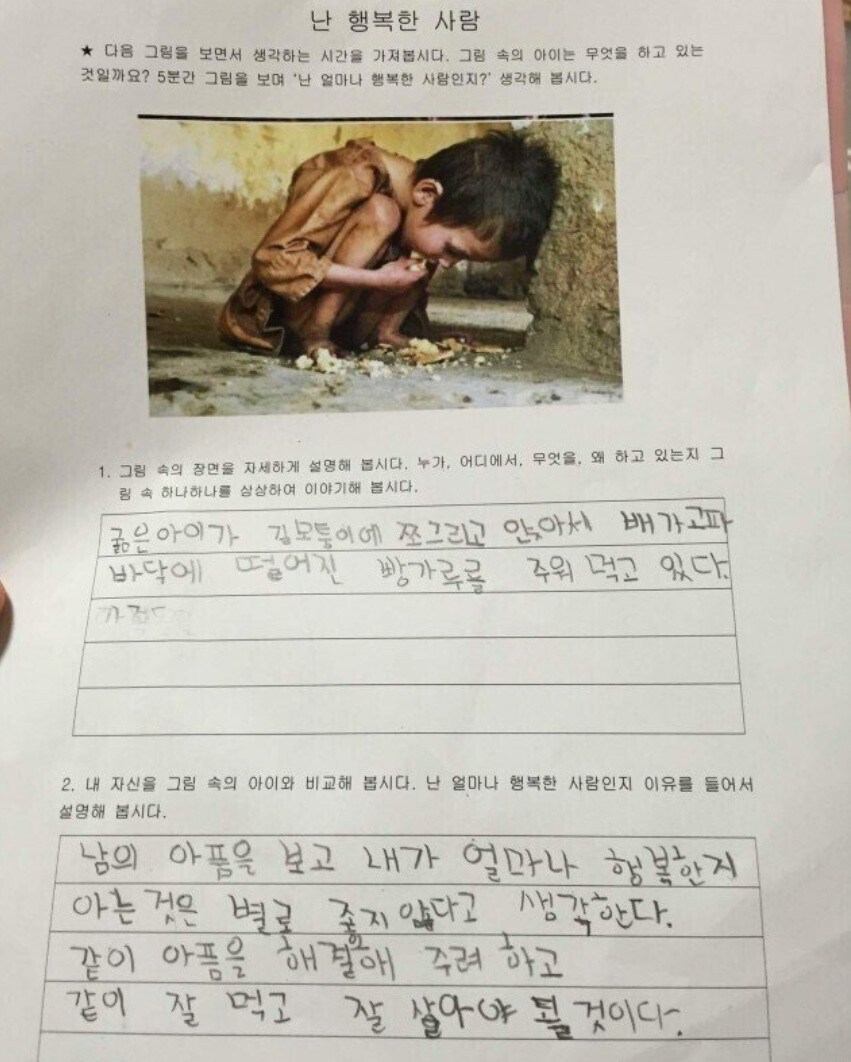 난 행복한 사람
★ 다음 그림을 보면서 생각하는 시간을 가져봅시다. 그림 속의 아이는 무엇을 하고 있는
것일까요? 5분간 그림을 보며 '난 얼마나 행복한 사람인지?' 생각해 봅시다.
1. 그림 속의 장면을 자세하게 설명해 봅시다. 누가, 어디에서, 무엇을, 왜 하고 있는지 그
림 속 하나하나를 상상하여 이야기해 봅시다.
굶은아이가 길모퉁이에 쪼그리고 앉아서 배가고파
바닥에 떨어진 빵가루를 주워 먹고 있다.
2. 내 자신을 그림 속의 아이와 비교해 봅시다. 난 얼마나 행복한 사람인지 이유를 들어서
설명해 봅시다.
남의 아픔을 보고 내가 얼마나 행복한지
아는것은 별로 좋지 않다고 생각한다.
같이 아픔을 해결해 주려 하고
같이 잘 먹고 잘 살아야 될 것이다.